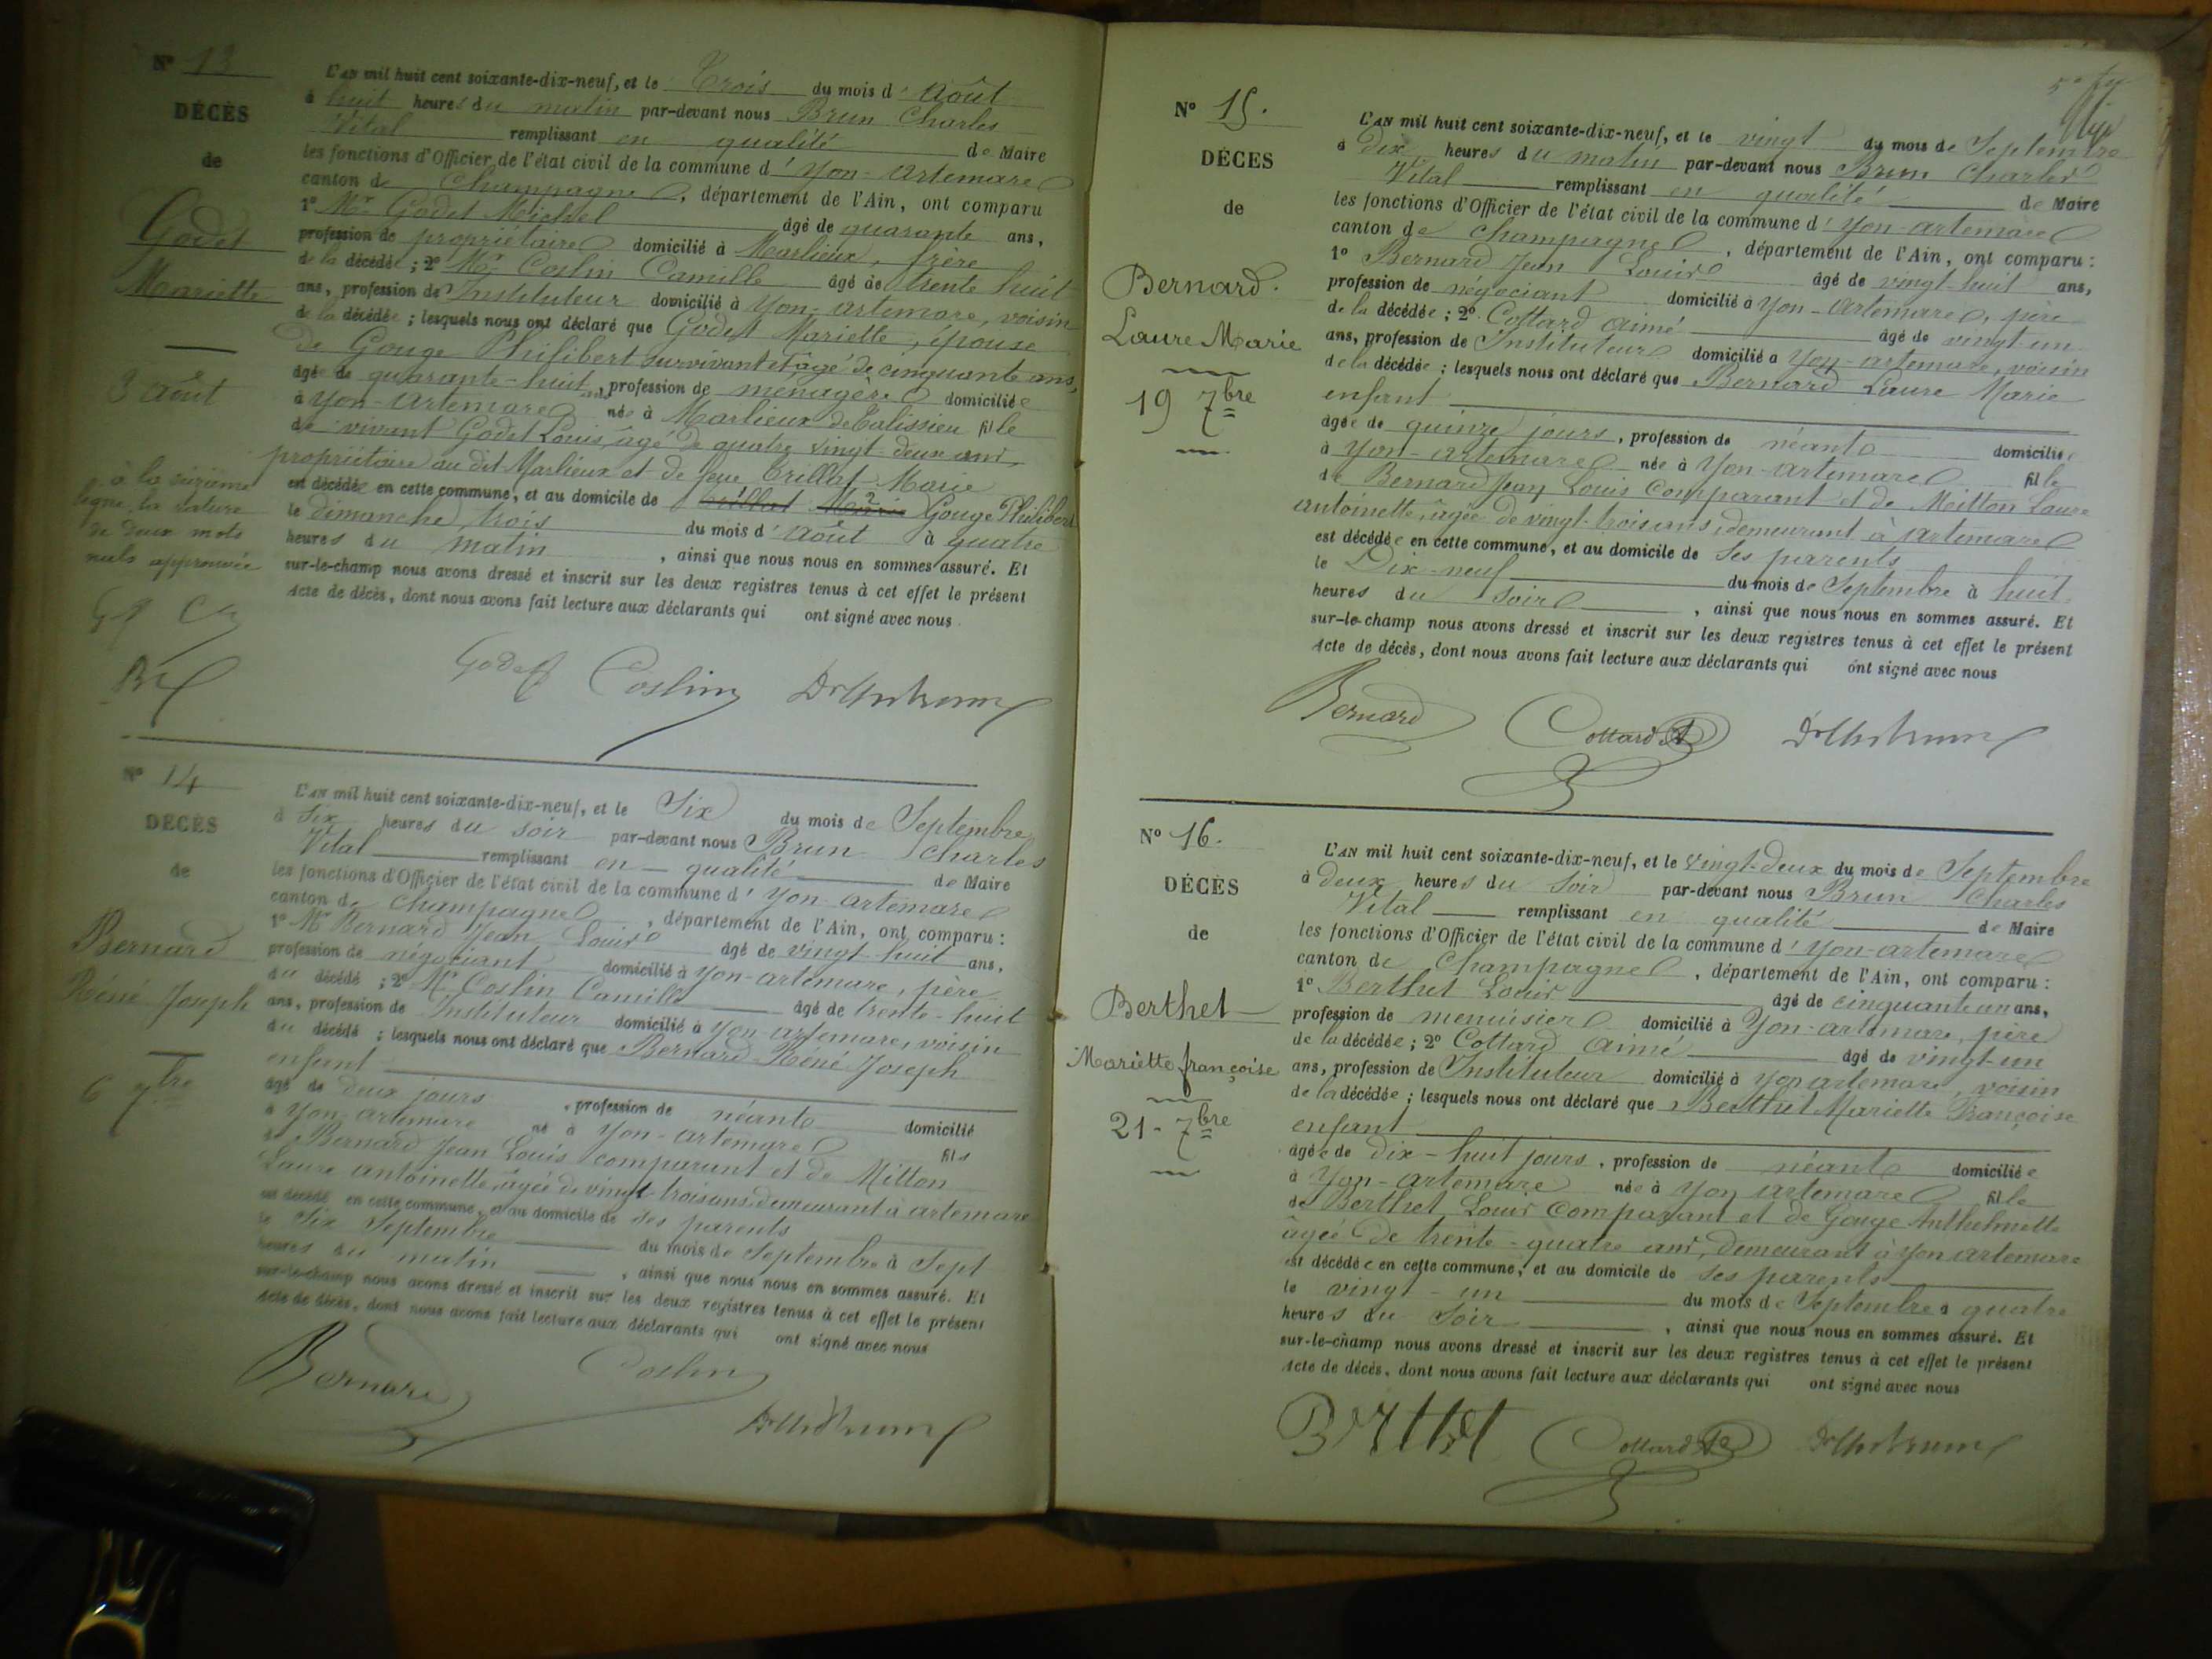 N° 13
DÉCÈS
de
Godet
Mariette
3 août
à la sixième
ligne la rature
de deux mots
nuls approuvée
L'AN mil huit cent soixante-dix-neuf, et le Trois du mois d'Août
à huit heures du matin par-devant nous Brun Charles
Vital remplissant en qualité de Maire
les fonctions d'Officier de l'état civil de la commune d'Yon-Artemare
canton de Champagne, département de l'Ain, ont comparu
1° Mr Godet Michel âgé de quarante ans,
profession de propriétaire domicilié à Marlieux, frère
de la décédée; 2° Mr Coslin Camille âgé de trente huit
ans, profession d'Instituteur domicilié à Yon-Artemare, voisin
de la décédée; lesquels nous ont déclaré que Godet Mariette, épouse
de Gouge Philibert survivant et âgé de cinquante ans,
âgée de quarante-huit ans, profession de ménagère domiciliée
à Yon-Artemare née à Marlieux de Talissieu fille
de vivant Godet Louis, âgé de quatre vingt deux ans,
propriétaire au dit Marlieux et de feue Trillat Marie
est décédée en cette commune, et au domicile de Trillat Marie Gouge Philibert
le dimanche trois du mois d'Août à quatre
heures du matin, ainsi que nous nous en sommes assuré. Et
sur-le-champ nous avons dressé et inscrit sur les deux registres tenus à cet effet le présent
Acte de décès, dont nous avons fait lecture aux déclarants qui ont signé avec nous.
Godet Coslin
N° 14
DÉCÈS
de
Bernard
Réné Joseph
6 7bre
L'AN mil huit cent soixante-dix-neuf, et le Six du mois de Septembre
à Six heures du soir par-devant nous Brun Charles
Vital remplissant en qualité de Maire
les fonctions d'Officier de l'état civil de la commune d'Yon-Artemare
canton de Champagne, département de l'Ain, ont comparu:
1° Mr Bernard Jean Louis âgé de vingt-huit ans,
profession de négociant domicilié à Yon-Artemare, père
du décédé; 2° Mr Coslin Camille âgé de trente-huit
ans, profession de Instituteur domicilié à Yon-Artemare, voisin
du décédé; lesquels nous ont déclaré que Bernard Réné Joseph
enfant
âgé de deux jours, profession de néant domicilié
à Yon-Artemare né à Yon-Artemare fils
de Bernard Jean Louis comparant et de Mitton
Laure antoinette, âgée de vingt-trois ans, demeurant à artemare
est décédé en cette commune, et au domicile de ses parents
le Six Septembre du mois de Septembre à Sept
heures du matin, ainsi que nous nous en sommes assuré. Et
sur-le-champ nous avons dressé et inscrit sur les deux registres tenus à cet effet le présent
Acte de décès, dont nous avons fait lecture aux déclarants qui ont signé avec nous
Bernard Coslin
N° 15.
DÉCÈS
de
Bernard.
Laure Marie
19 7bre
L'AN mil huit cent soixante-dix-neuf, et le vingt du mois de Septembre
à Dix heures du matin par-devant nous Brun Charles
Vital remplissant en qualité de Maire
les fonctions d'Officier de l'état civil de la commune d'Yon-Artemare
canton de Champagne, département de l'Ain, ont comparu:
1° Bernard Jean Louis âgé de vingt-huit ans,
profession de négociant domicilié à Yon-Artemare, père
de la décédée; 2° Cottard Aimé âgé de vingt-un
ans, profession de Instituteur domicilié à Yon-artemare, voisin
de la décédée; lesquels nous ont déclaré que Bernard Laure Marie
enfant
âgée de quinze jours, profession de néant domiciliée
à Yon-Artemare née à Yon-artemare fille
de Bernard Jean Louis Comparant et de Mitton Laure
antoinette, âgée de vingt-trois ans, demeurant à Artemare
est décédée en cette commune, et au domicile de ses parents
le Dix-neuf du mois de Septembre à huit
heures du soir, ainsi que nous nous en sommes assuré. Et
sur-le-champ nous avons dressé et inscrit sur les deux registres tenus à cet effet le présent
Acte de décès, dont nous avons fait lecture aux déclarants qui ont signé avec nous
Bernard Cottard A
N° 16.
DÉCÈS
de
Berthet
Mariette françoise
21 - 7bre
L'AN mil huit cent soixante-dix-neuf, et le vingt-deux du mois de Septembre
à deux heures du Soir par-devant nous Brun Charles
Vital remplissant en qualité de Maire
les fonctions d'Officier de l'état civil de la commune d'Yon-artemare
canton de Champagne, département de l'Ain, ont comparu:
1° Berthet Louis âgé de cinquante un ans,
profession de menuisier domicilié à Yon-artemare, père
de la décédée; 2° Cottard Aimé âgé de vingt-un
ans, profession de Instituteur domicilié à Yon artemare, voisin
de la décédée; lesquels nous ont déclaré que Berthet Mariette Françoise
enfant
âgée de dix-huit jours, profession de néant domiciliée
à Yon-artemare née à Yon artemare fille
de Berthet Louis Comparant et de Gouge Anthelmette
âgée de trente-quatre ans, demeurant à Yon artemare
est décédée en cette commune, et au domicile de ses parents
le vingt-un du mois de Septembre à quatre
heures du Soir, ainsi que nous nous en sommes assuré. Et
sur-le-champ nous avons dressé et inscrit sur les deux registres tenus à cet effet le présent
Acte de décès, dont nous avons fait lecture aux déclarants qui ont signé avec nous
Berthet Cottard A